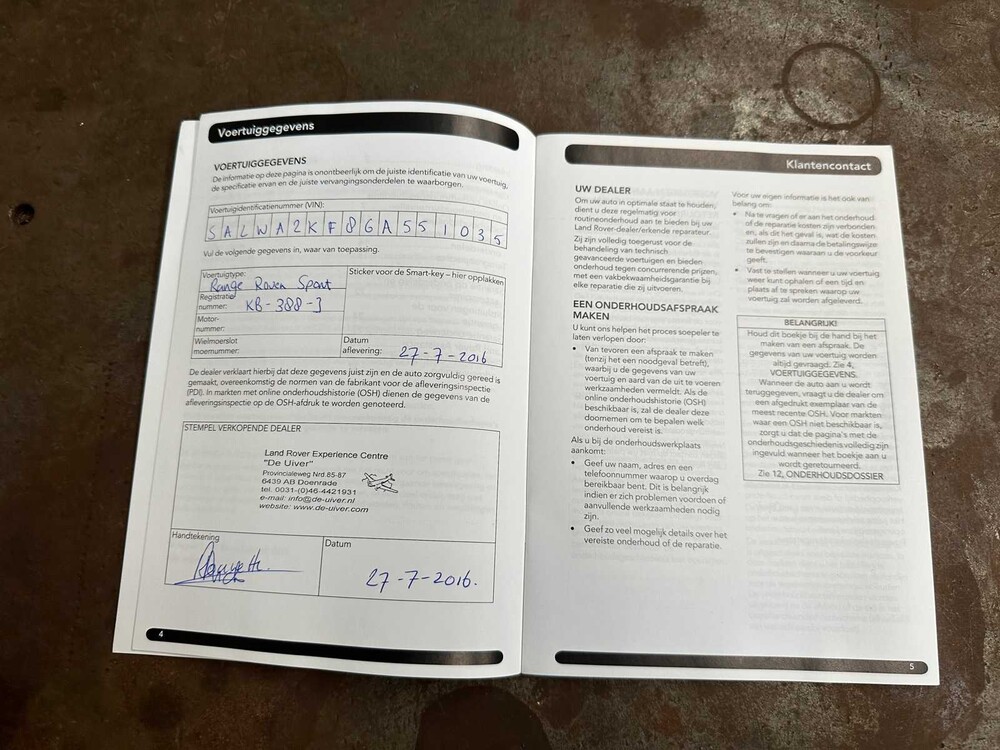 Voertuiggegevens
VOERTUIGGEGEVENS
De informatie op deze pagina is onontbeerlijk om de juiste identificatie van uw voertuig,
de specificatie ervan en de juiste vervangingsonderdelen te waarborgen.
Voertuigidentificatienummer (VIN):
SALWA2KF8GA551035
Vul de volgende gegevens in, waar van toepassing.
Voertuigtype:
Range Rover Sport
Sticker voor de Smart-key – hier opplakken
Registratie
nummer: KB-388-J
Motor-
nummer:
Wielmoerslot
moernummer:
Datum
aflevering: 27-7-2016
De dealer verklaart hierbij dat deze gegevens juist zijn en de auto zorgvuldig gereed is
gemaakt, overeenkomstig de normen van de fabrikant voor de afleveringsinspectie
(PDI). In markten met online onderhoudshistorie (OSH) dienen de gegevens van de
afleveringsinspectie op de OSH-afdruk te worden genoteerd.
STEMPEL VERKOPENDE DEALER
Land Rover Experience Centre
"De Uiver"
Provincialeweg Nrd.85-87
6439 AB Doenrade
tel. 0031-(0)46-4421931
e-mail: info@de-uiver.nl
website: www.de-uiver.com
Handtekening
Datum
27-7-2016.
4
Klantencontact
UW DEALER
Om uw auto in optimale staat te houden,
dient u deze regelmatig voor
routineonderhoud aan te bieden bij uw
Land Rover-dealer/erkende reparateur.
Zij zijn volledig toegerust voor de
behandeling van technisch
geavanceerde voertuigen en bieden
onderhoud tegen concurrerende prijzen,
met een vakbekwaamheidsgarantie bij
elke reparatie die zij uitvoeren.
EEN ONDERHOUDSAFSPRAAK
MAKEN
U kunt ons helpen het proces soepeler te
laten verlopen door:
• Van tevoren een afspraak te maken
(tenzij het een noodgeval betreft),
waarbij u de gegevens van uw
voertuig en aard van de uit te voeren
werkzaamheden vermeldt. Als de
online onderhoudshistorie (OSH)
beschikbaar is, zal de dealer deze
doornemen om te bepalen welk
onderhoud vereist is.
Als u bij de onderhoudswerkplaats
aankomt:
• Geef uw naam, adres en een
telefoonnummer waarop u overdag
bereikbaar bent. Dit is belangrijk
indien er zich problemen voordoen of
aanvullende werkzaamheden nodig
zijn.
• Geef zo veel mogelijk details over het
vereiste onderhoud of de reparatie.
Voor uw eigen informatie is het ook van
belang om:
• Na te vragen of er aan het onderhoud
of de reparatie kosten zijn verbonden
en, als dit het geval is, wat de kosten
zullen zijn en daarna de betalingswijze
te bevestigen waaraan u de voorkeur
geeft.
• Vast te stellen wanneer u uw voertuig
weer kunt ophalen of een tijd en
plaats af te spreken waarop uw
voertuig zal worden afgeleverd.
BELANGRIJK!
Houd dit boekje bij de hand bij het
maken van een afspraak. De
gegevens van uw voertuig worden
altijd gevraagd. Zie 4,
VOERTUIGGEGEVENS.
Wanneer de auto aan u wordt
teruggegeven, vraagt u de dealer om
een afgedrukt exemplaar van de
meest recente OSH. Voor markten
waar een OSH niet beschikbaar is,
zorgt u dat de pagina's met de
onderhoudsgeschiedenis volledig zijn
ingevuld wanneer het boekje aan u
wordt geretourneerd.
Zie 12, ONDERHOUDSDOSSIER
5